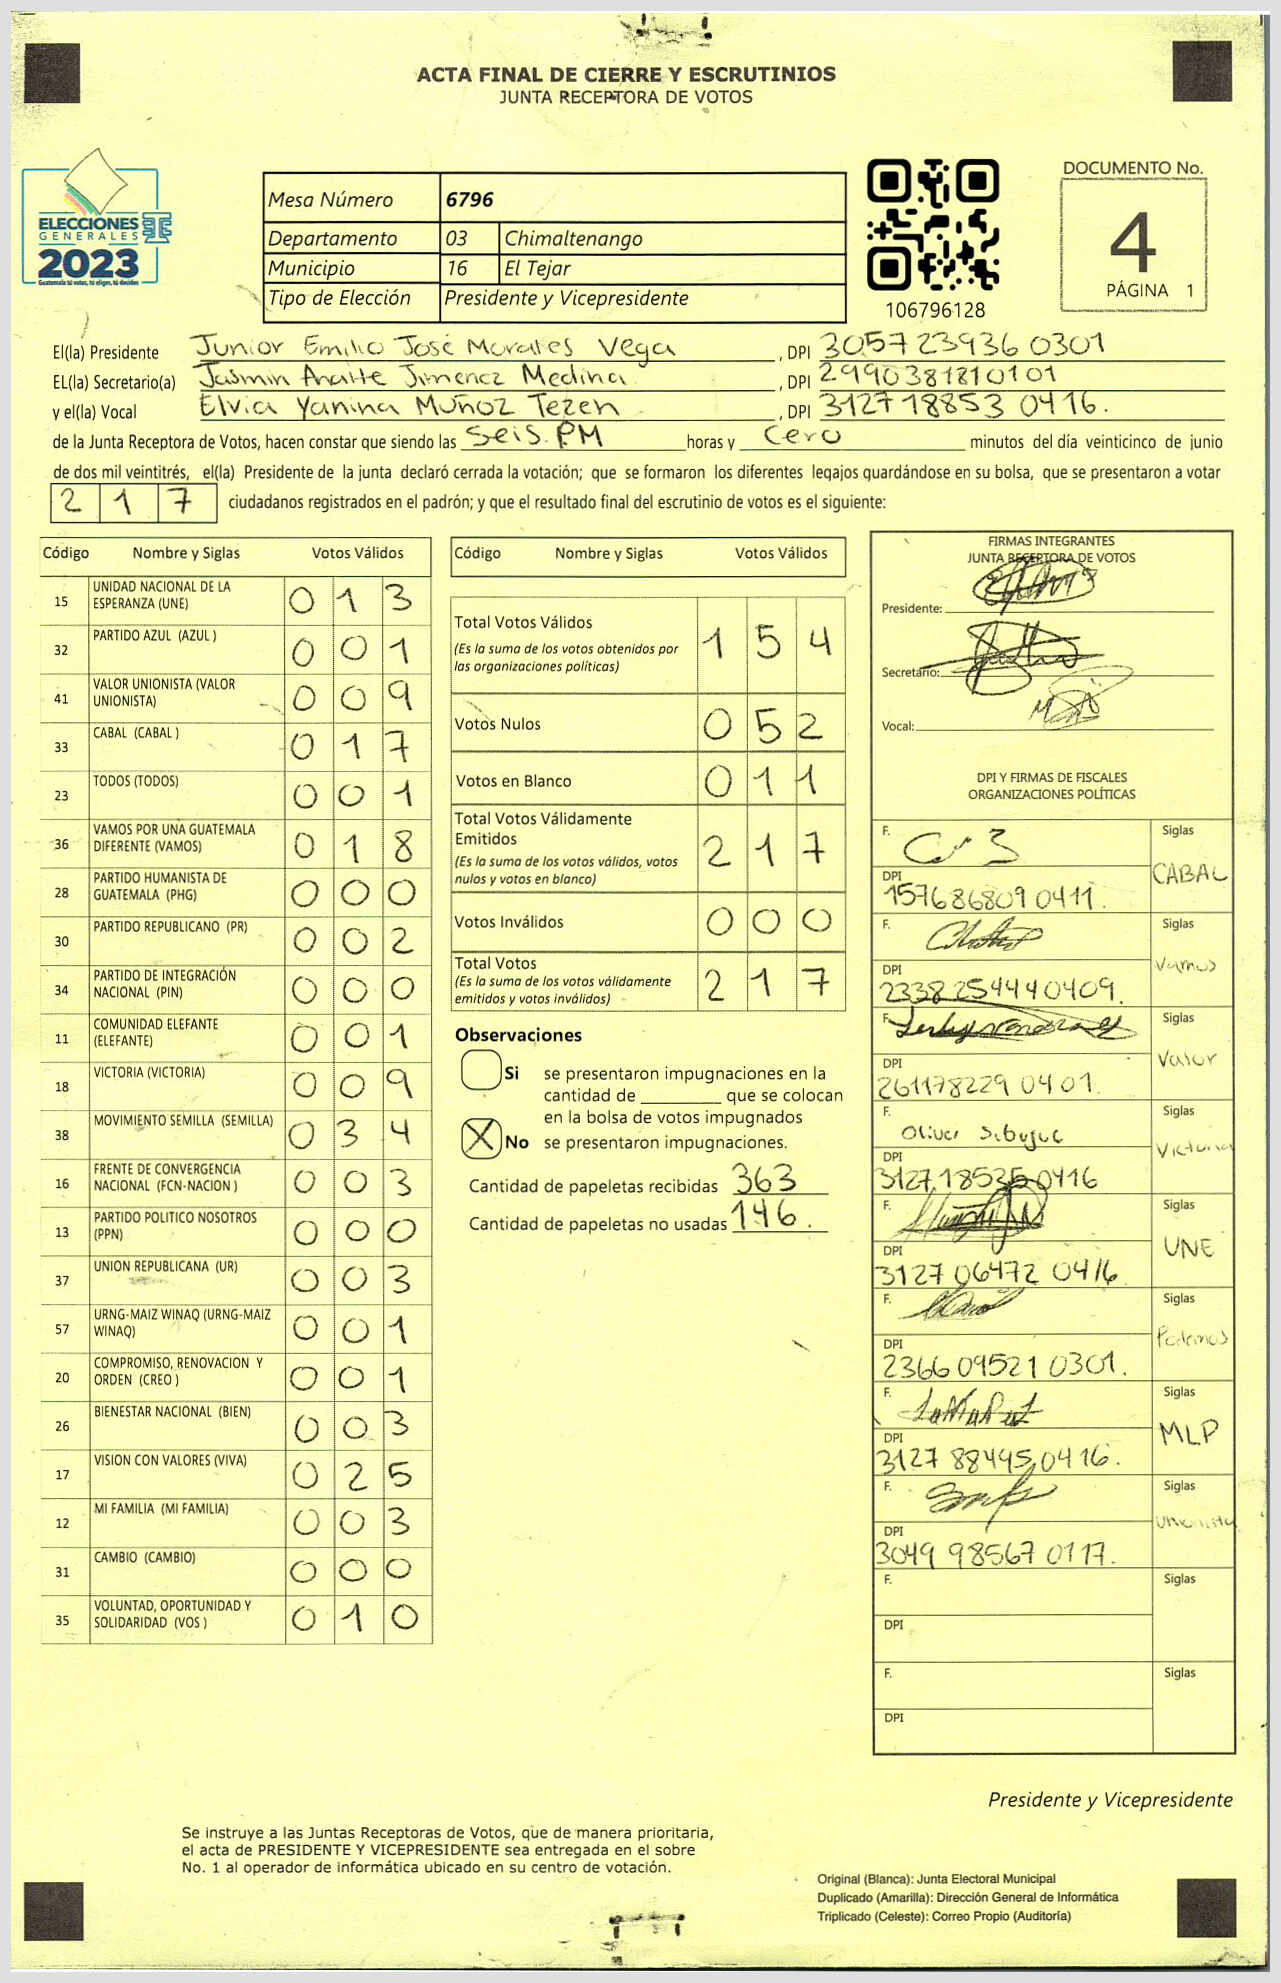 ACTA FINAL DE CIERRE Y ESCRUTINIOS
JUNTA RECEPTORA DE VOTOS
ELECCIONES
GENERALES
2023
Guatemala tú votas, tú eliges, tú decides
Mesa Número 6796
Departamento 03 Chimaltenango
Municipio 16 El Tejar
Tipo de Elección Presidente y Vicepresidente
106796128
DOCUMENTO No.
4
PÁGINA 1
El(la) Presidente Junior Emilio José Morales Vega, DPI 305723936 0301
EL(la) Secretario(a) Jasmin Anaite Jimenez Medina, DPI 2990381810101
y el(la) Vocal Elvia Yanina Muñoz Tezen, DPI 312718853 0416.
de la Junta Receptora de Votos, hacen constar que siendo las seis PM horas y cero minutos del día veinticinco de junio
de dos mil veintitrés, el(la) Presidente de la junta declaró cerrada la votación; que se formaron los diferentes legajos guardándose en su bolsa, que se presentaron a votar
2 1 7 ciudadanos registrados en el padrón; y que el resultado final del escrutinio de votos es el siguiente:
Código Nombre y Siglas Votos Válidos
15 UNIDAD NACIONAL DE LA ESPERANZA (UNE) 0 1 3
32 PARTIDO AZUL (AZUL ) 0 0 1
41 VALOR UNIONISTA (VALOR UNIONISTA) 0 0 9
33 CABAL (CABAL ) 0 1 7
23 TODOS (TODOS) 0 0 1
36 VAMOS POR UNA GUATEMALA DIFERENTE (VAMOS) 0 1 8
28 PARTIDO HUMANISTA DE GUATEMALA (PHG) 0 0 0
30 PARTIDO REPUBLICANO (PR) 0 0 2
34 PARTIDO DE INTEGRACIÓN NACIONAL (PIN) 0 0 0
11 COMUNIDAD ELEFANTE (ELEFANTE) 0 0 1
18 VICTORIA (VICTORIA) 0 0 9
38 MOVIMIENTO SEMILLA (SEMILLA) 0 3 4
16 FRENTE DE CONVERGENCIA NACIONAL (FCN-NACION ) 0 0 3
13 PARTIDO POLITICO NOSOTROS (PPN) 0 0 0
37 UNION REPUBLICANA (UR) 0 0 3
57 URNG-MAIZ WINAQ (URNG-MAIZ WINAQ) 0 0 1
20 COMPROMISO, RENOVACION Y ORDEN (CREO ) 0 0 1
26 BIENESTAR NACIONAL (BIEN) 0 0 3
17 VISION CON VALORES (VIVA) 0 2 5
12 MI FAMILIA (MI FAMILIA) 0 0 3
31 CAMBIO (CAMBIO) 0 0 0
35 VOLUNTAD, OPORTUNIDAD Y SOLIDARIDAD (VOS ) 0 1 0
Código Nombre y Siglas Votos Válidos
Total Votos Válidos 1 5 4
(Es la suma de los votos obtenidos por
las organizaciones políticas)
Votos Nulos 0 5 2
Votos en Blanco 0 1 1
Total Votos Válidamente
Emitidos 2 1 7
(Es la suma de los votos válidos, votos
nulos y votos en blanco)
Votos Inválidos 0 0 0
Total Votos 2 1 7
(Es la suma de los votos válidamente
emitidos y votos inválidos)
Observaciones
Si se presentaron impugnaciones en la
cantidad de ________ que se colocan
en la bolsa de votos impugnados
X No se presentaron impugnaciones.
Cantidad de papeletas recibidas 363
Cantidad de papeletas no usadas 146.
FIRMAS INTEGRANTES
JUNTA RECEPTORA DE VOTOS
Presidente:
Secretario:
Vocal:
DPI Y FIRMAS DE FISCALES
ORGANIZACIONES POLÍTICAS
F. Siglas
CABAL
DPI
157686809 0411.
F. Siglas
Vamos
DPI
2338 25444 0409.
F. Siglas
Valor
DPI
261178229 0401.
F. Oliver Sibujuc Siglas
Victoria
DPI
3127 18535 0416
F. Siglas
UNE
DPI
3127 06472 0416
F. Siglas
Podemos
DPI
2366 09521 0301.
F. Siglas
MLP
DPI
3127 88445 0416.
F. Siglas
Unionista
DPI
3049 98567 0117.
F. Siglas
DPI
F. Siglas
DPI
Presidente y Vicepresidente
Se instruye a las Juntas Receptoras de Votos, que de manera prioritaria,
el acta de PRESIDENTE Y VICEPRESIDENTE sea entregada en el sobre
No. 1 al operador de informática ubicado en su centro de votación.
Original (Blanca): Junta Electoral Municipal
Duplicado (Amarilla): Dirección General de Informática
Triplicado (Celeste): Correo Propio (Auditoría)